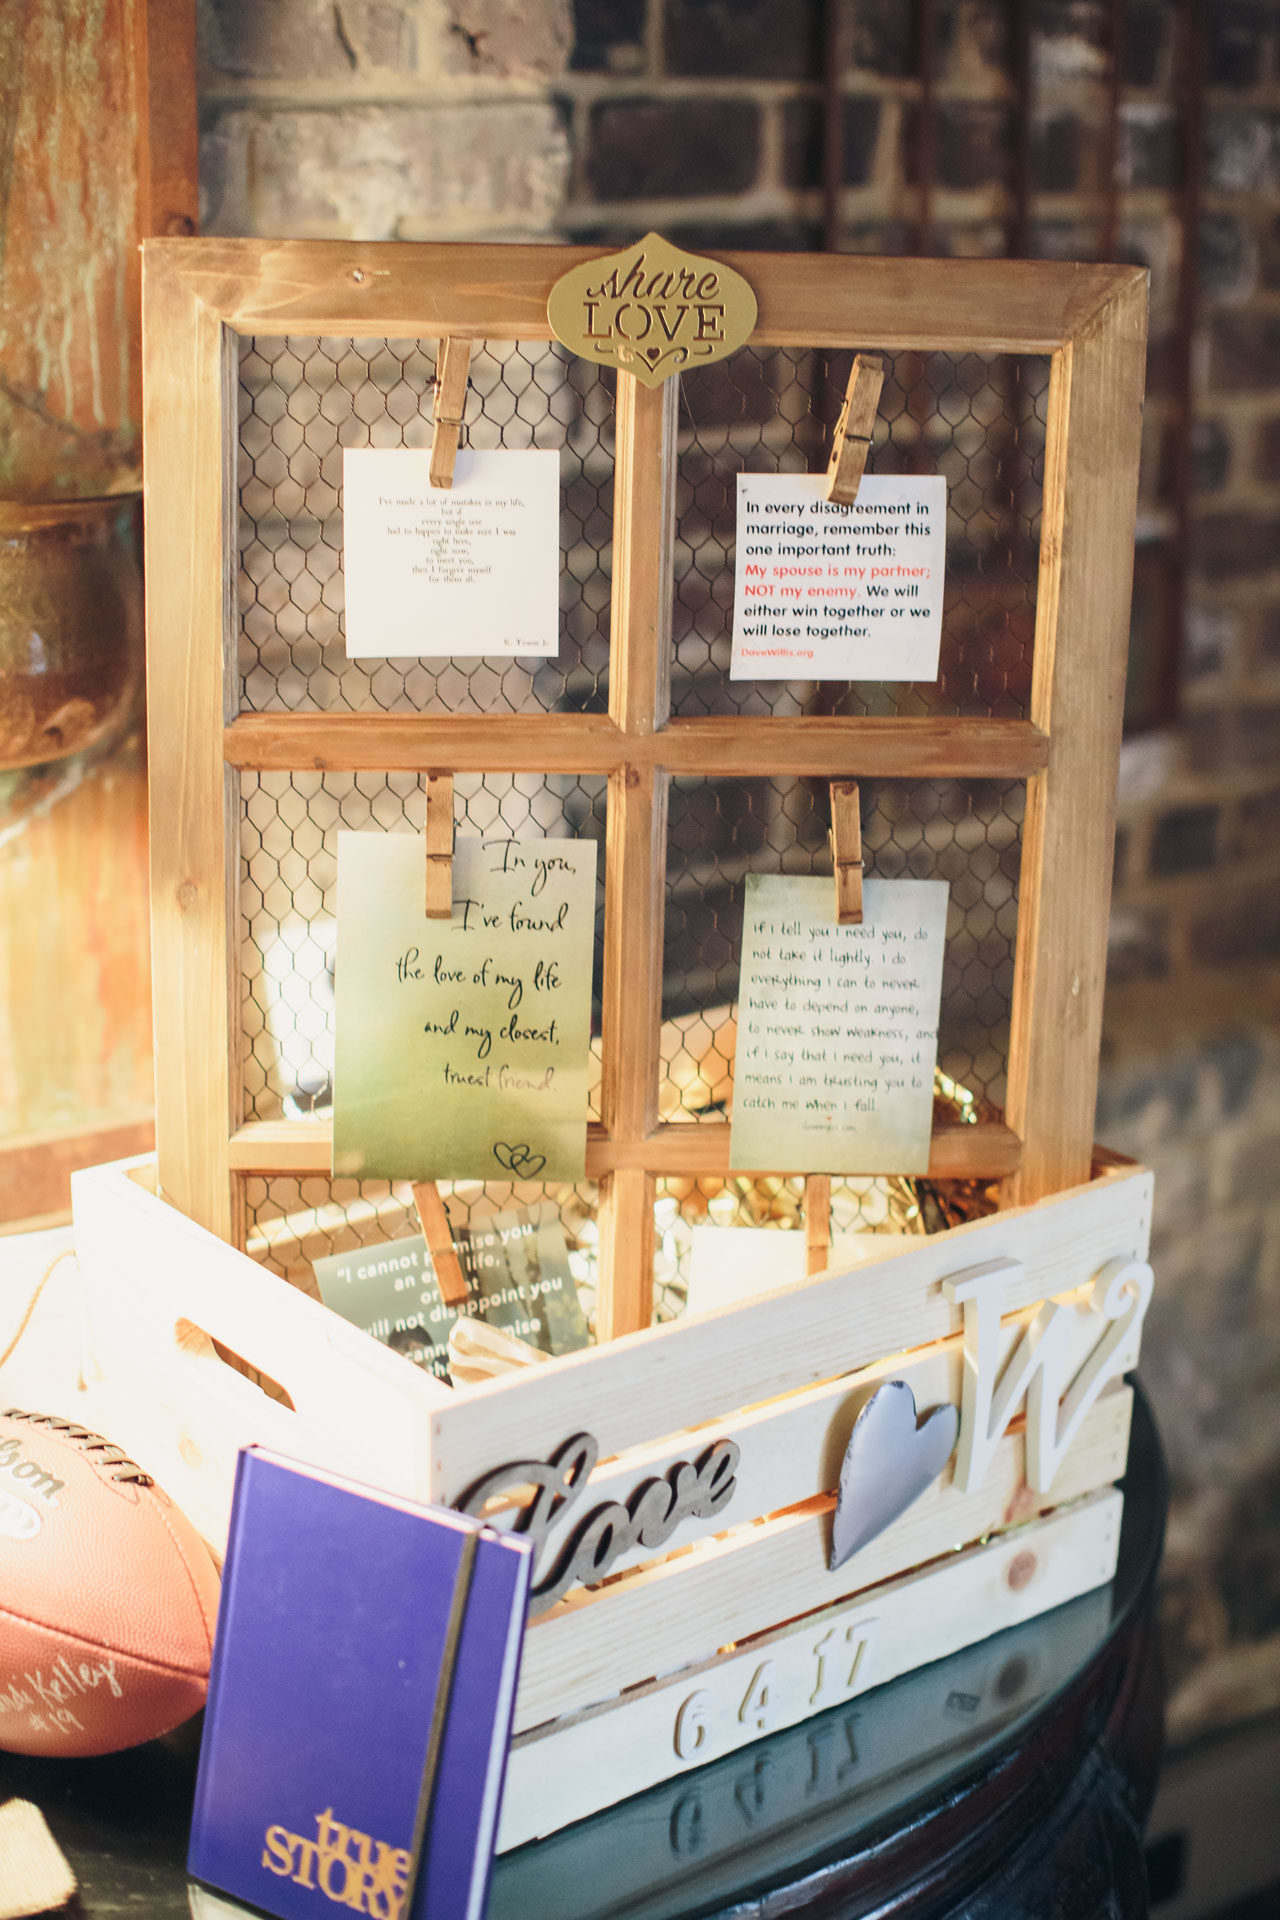 share
LOVE
I've made a lot of mistakes in my life,
but if
every single one
had to happen to make sure I was
right here,
right now,
to meet you,
then I forgive myself
for them all.
In every disagreement in
marriage, remember this
one important truth:
My spouse is my partner;
NOT my enemy. We will
either win together or we
will lose together.
DaveWillis.org
In you,
I've found
the love of my life
and my closest,
truest friend.
If I tell you I need you, do
not take it lightly. I do
everything I can to never
have to depend on anyone,
to never show weakness, and
if I say that I need you, it
means I am trusting you to
catch me when I fall.
"I cannot promise you
an life,
or
will not disappoint you
Love
W
6 4 17
Kelley
#19
true
STORY